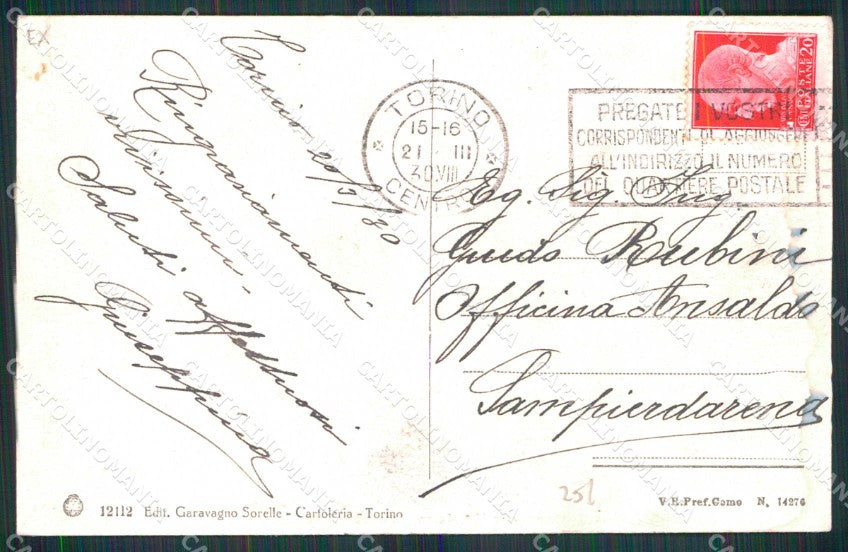 Torino 20/3/30
Ringraziamenti
vivissimi -
Saluti affettuosi
Giuseppina
TORINO
15-16
21 · III
30.VIII
CENTRO
POSTE ITALIANE 20
PREGATE I VOSTRI
CORRISPONDENTI DI AGGIUNGERE
ALL'INDIRIZZO IL NUMERO
DEL QUARTIERE POSTALE
Eg. Sig. Ing.
Guido Rubini
Officina Ansaldo
Sampierdarena
25/
12112 Edit. Garavagno Sorelle - Cartoleria - Torino
V.E.Pref.Como N. 14276
CARTOLINOMANIA